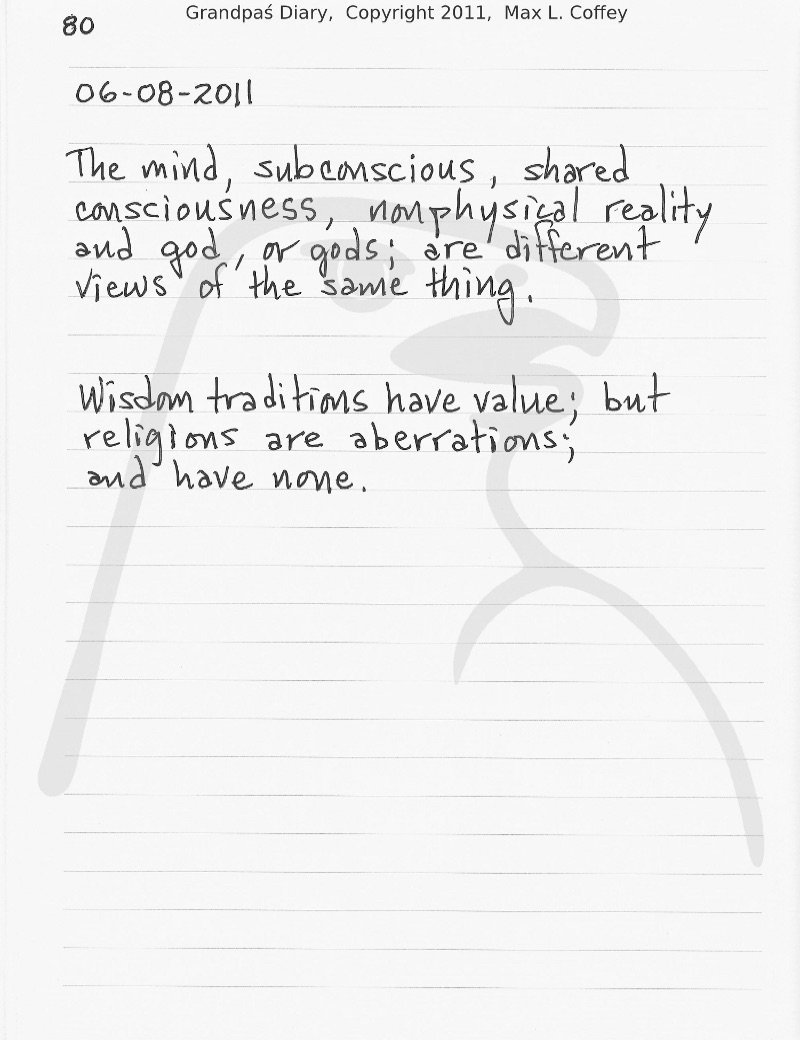 Grandpaś Diary, Copyright 2011, Max L. Coffey
80
06-08-2011
The mind, subconscious, shared
consciousness, nonphysical reality
and god, or gods; are different
views of the same thing.
Wisdom traditions have value; but
religions are aberrations;
and have none.